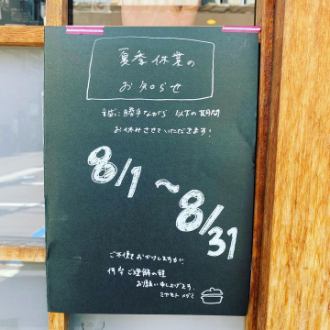 夏季休業の
お知らせ
誠に勝手ながら 以下の期間
お休みさせていただきます!
8/1～8/31
ご不便おかけしますが、
何卒ご理解の程
お願い申し上げます